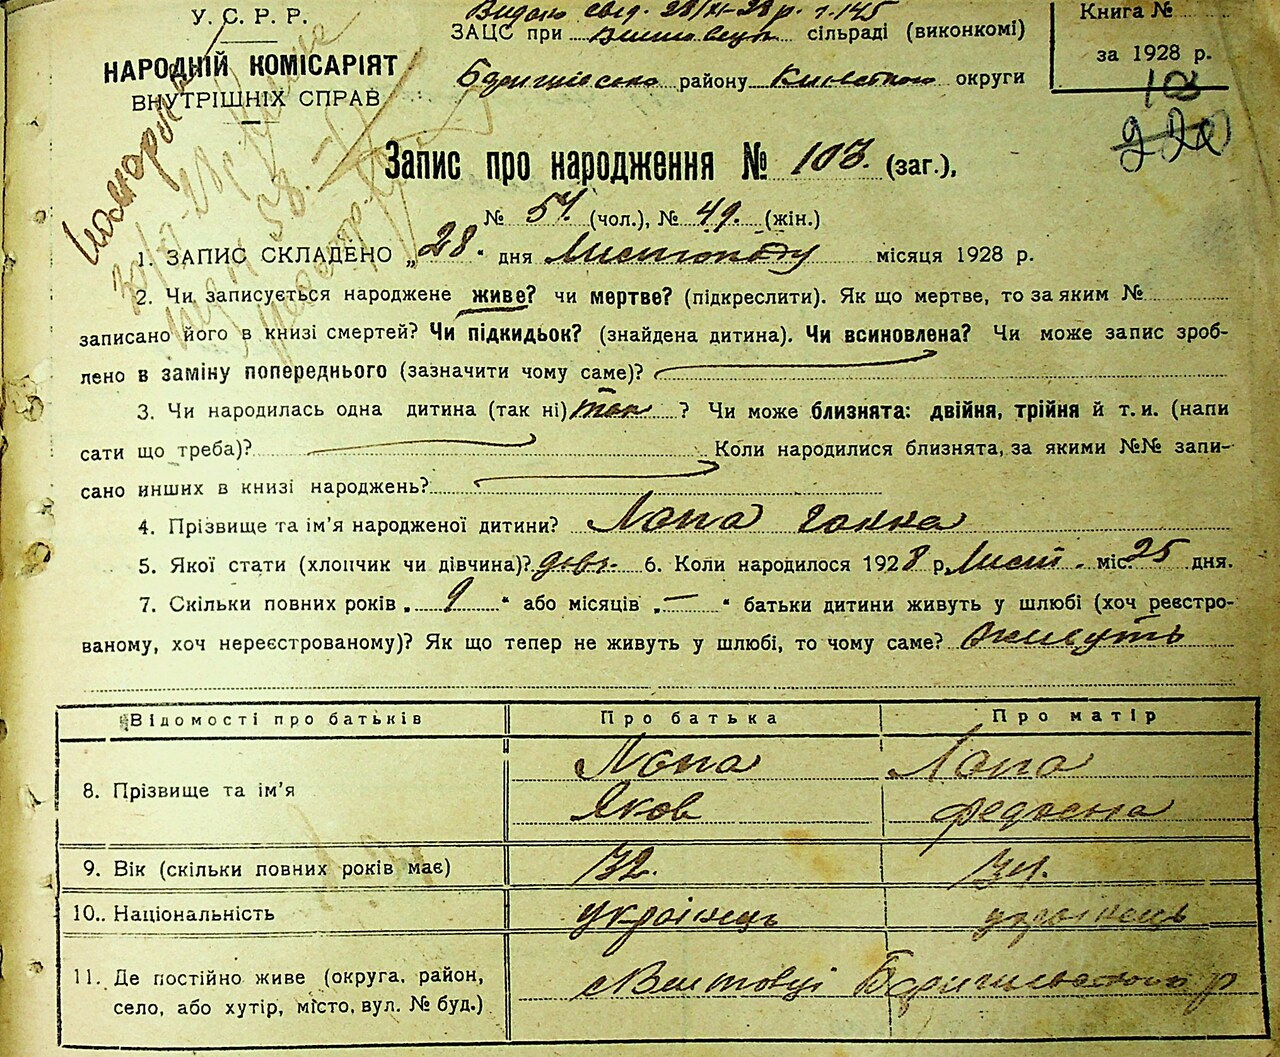 У. С. Р. Р.
НАРОДНІЙ КОМІСАРІЯТ
ВНУТРІШНІХ СПРАВ
ЗАЦС при сільраді (виконкомі)
району округи
Книга №
за 1928 р.
103
220
Запис про народження № 103. (заг.),
№ 54. (чол.), № 49. (жін.)
1. ЗАПИС СКЛАДЕНО „28." дня Листопаду місяця 1928 р.
2. Чи записується народжене живе? чи мертве? (підкреслити). Як що мертве, то за яким №
записано його в книзі смертей? Чи підкидьок? (знайдена дитина). Чи всиновлена? Чи може запис зроб-
лено в заміну попереднього (зазначити чому саме)?
3. Чи народилась одна дитина (так ні) так ? Чи може близнята: двійня, трійня й т. и. (напи
сати що треба)? Коли народилися близнята, за якими №№ запи-
сано инших в книзі народжень?
4. Прізвище та ім'я народженої дитини? Лопа Ганна
5. Якої стати (хлопчик чи дівчина)? дівч. 6. Коли народилося 1928 р. Лист. міс. 25 дня.
7. Скільки повних років „ 9 " або місяців „ — " батьки дитини живуть у шлюбі (хоч реєстро-
ваному, хоч нереєстрованому)? Як що тепер не живуть у шлюбі, то чому саме? живуть
Відомості про батьків Про батька Про матір
8. Прізвище та ім'я Лопа Яков Лопа
9. Вік (скільки повних років має) 32. 31.
10.. Національність українець українець
11. Де постійно живе (округа, район,
село, або хутір, місто, вул. № буд.) р